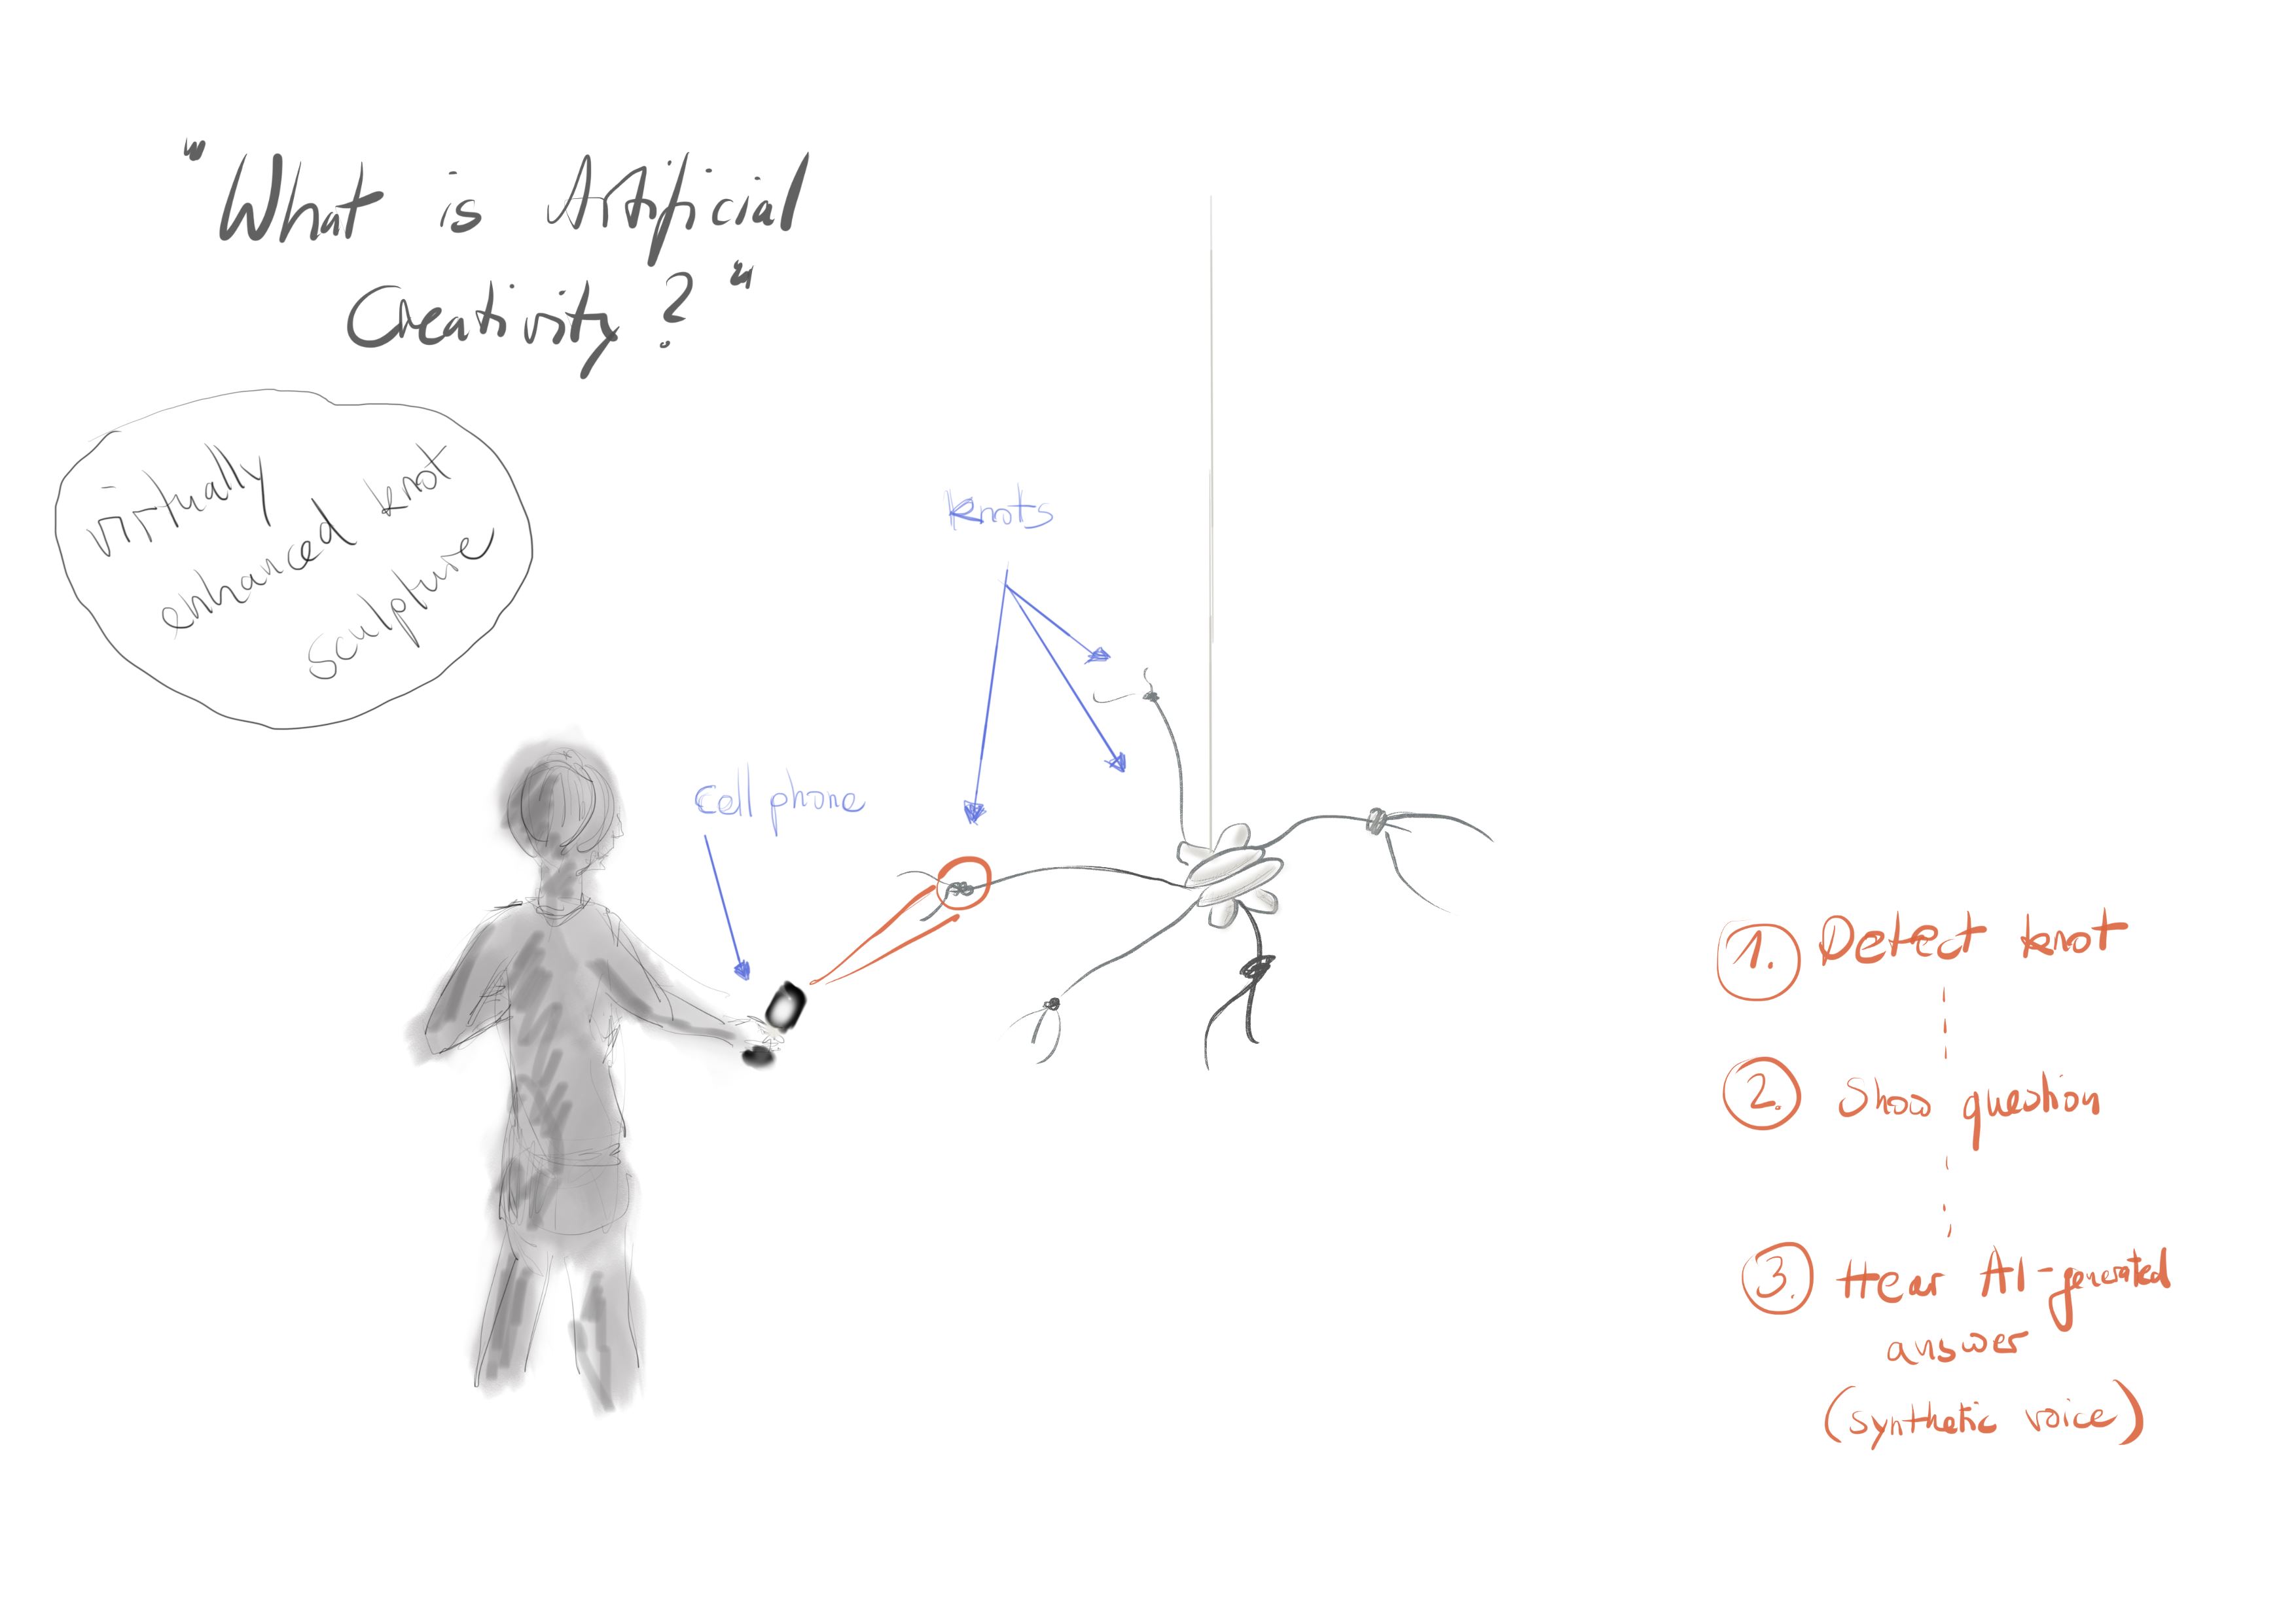 "What is Artificial
Creativity?"
virtually
enhanced knot
sculpture
knots
cell phone
1. Detect knot
2. Show question
3. Hear AI-generated
answer
(synthetic voice)